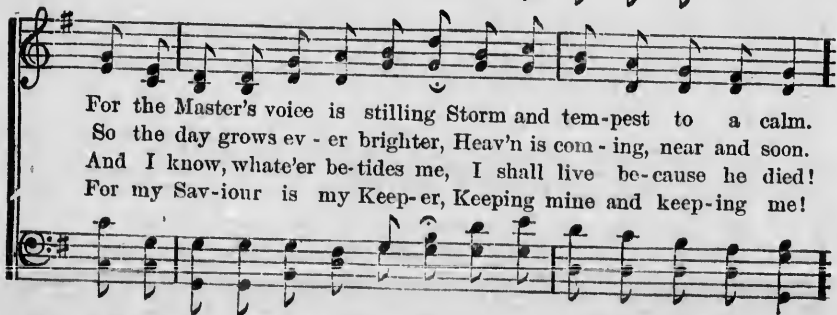 For the Master's voice is stilling Storm and tem-pest to a calm.
So the day grows ev - er brighter, Heav'n is com - ing, near and soon.
And I know, whate'er be-tides me, I shall live be-cause he died!
For my Sav-iour is my Keep-er, Keeping mine and keep-ing me!